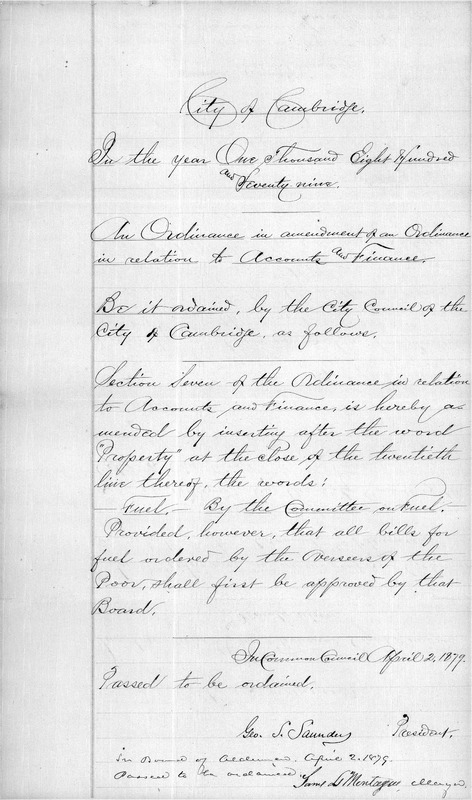 City of Cambridge.
In the year One Thousand Eight Hundred
and Seventy nine.
An Ordinance in amendment of an Ordinance
in relation to Accounts and Finance.
Be it ordained, by the City Council of the
City of Cambridge, as follows.
Section Seven of the Ordinance in relation
to Accounts and Finance, is hereby a-
mended by inserting after the word
"Property" at the close of the twentieth
line thereof, the words:
— Fuel, — By the Committee on Fuel. —
Provided, however, that all bills for
fuel ordered by the Overseers of the
Poor, shall first be approved by that
Board.
In Common Council April 2, 1879.
Passed to be ordained.
Geo. S. Saunders President.
In Board of Aldermen. April 2. 1879.
Passed to be ordained
Saml L Montague, Mayor